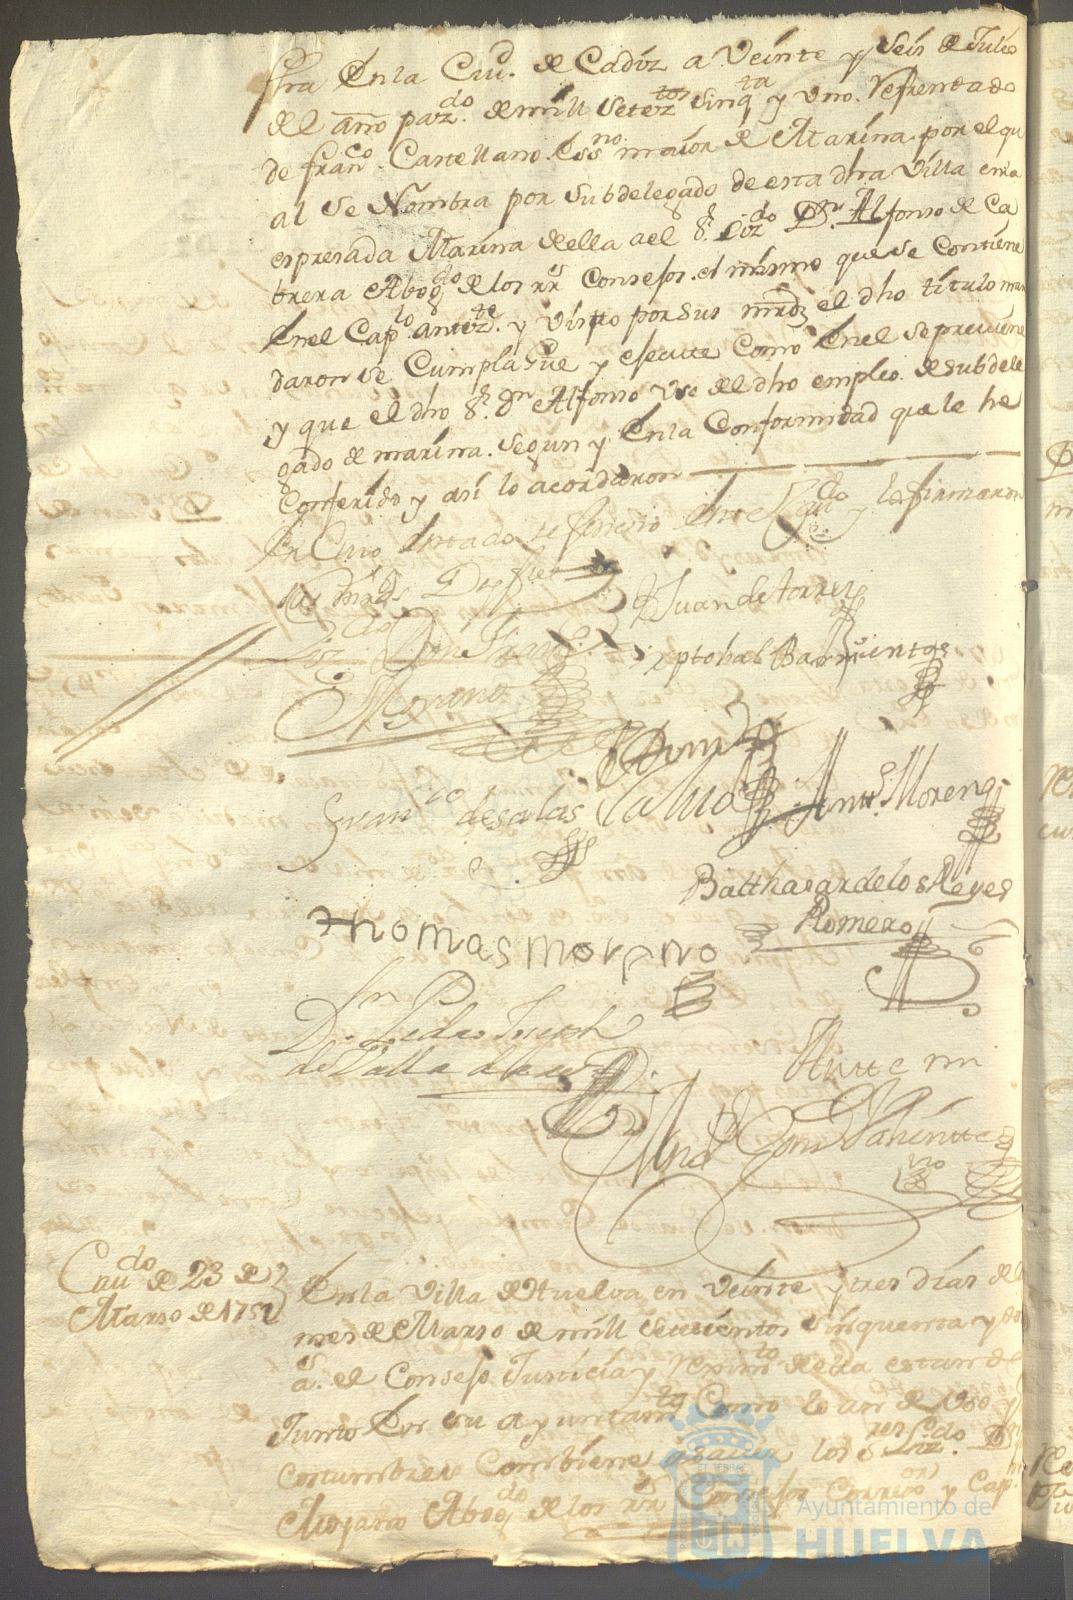 fha En la Ciud. de Cadiz a Veinte y Seis de Julio
del año pazdo. de mill Seteztos Sinqta y Uno. Refrentado
de Franco. Castellano. Essno. maior de Marina por el qu
al se Nombra por subdelegado de esta dha Villa en la
espresada Marina della a el Sr. Lizdo Dn. Alfonso de Ca
brera Abogdo de los Rs Consejos. el mismo que se Contiene
En el Caplo antezte. y Visto por sus mrds el dho titulo man
daron se Cumpla Gue y ejecute Como En el se previene
y que el dho Sr. Dn Alfonso Use del dho empleo. de Subdele
gado de marina. segun y En la Conformidad que le he
Conferido y asi lo acordaron
En Cuio Estado se fenecio Este Cauildo y lo firmaron
sus mrds
Lizdo Don Franco.
Moreno
Juan de torres
Xptobal Barrientos
Juanco de salas
Antto Moreno
Balthasar de los Reyes
Romero
thomas moreno
Dn Pedro Joseph
de Valladares
Antte mi
Valientte
Cauido de 23 de
Marso de 1752
En la Villa de Huelva en Veinte y tres dias del
mes de Marso de mill Setesientos Sinquenta y do
as. el Consejo Justicia y Reximto della estande
Junto En su ayuntamto Como lo an de Uso y
Costumbre Combiene a saver los Sres Lizdo. Dn
Moyano Abogdo de los Rs Consejos Correor y Capn.
Ayuntamiento de
HUELVA